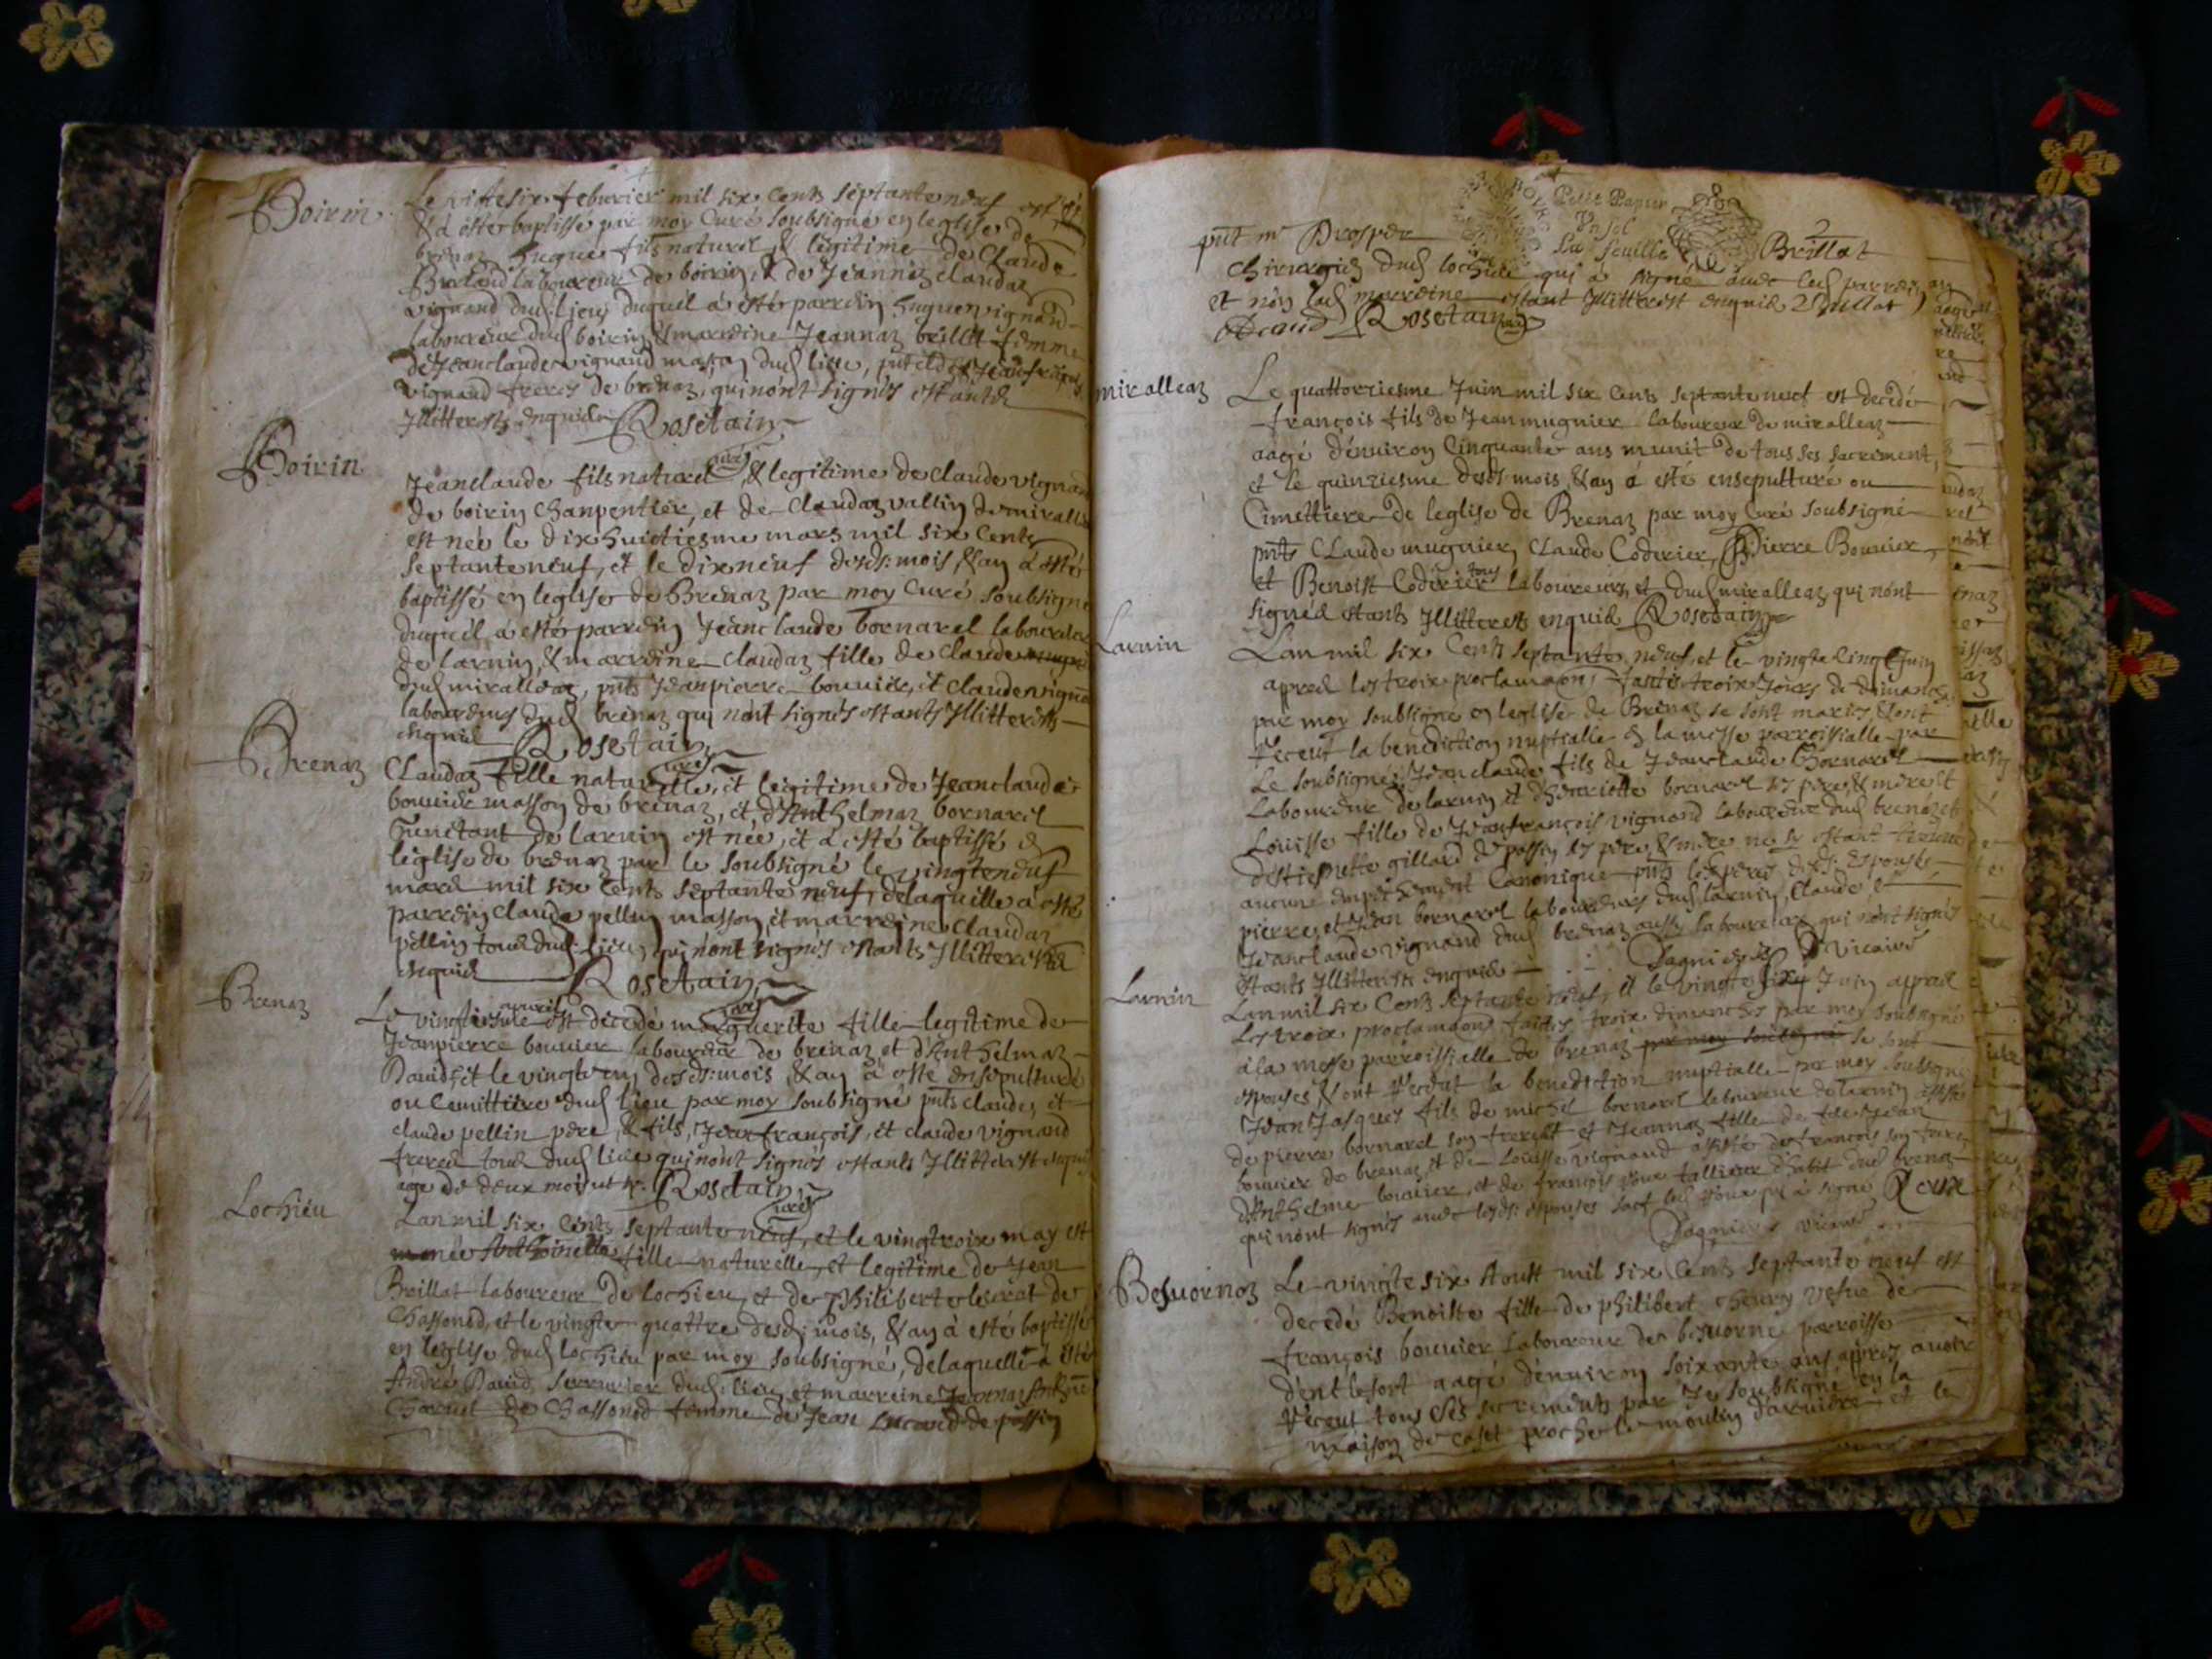 Boirin
Le vitesix feburier mil six cents septanteneuf est né
& a esté baptissé par moy Curé soubsigné en leglise de
brenaz hugue fils naturel & legitime de Claude
laboureur de boirin, & de Jeannaz claudaz
vignand dud. lieu, duquel a esté parrein huguen vignand
laboureur dud boirin & marreine Jeannaz brillat femme
de Jeanclaude vignand masson dud lieu,
vignand freres de brenaz, qui nont signés estants
Illitterests enquis Rosetain curé
Boirin
Jeanclaude fils naturel & legitime de claude vignand
de boirin Charpentier, et de Claudaz vallin de miralleaz
est née le dixhuictiesme mars mil six Cents
septanteneuf, et le dixneuf desds: mois, & an a esté
baptissé en leglise de Brenaz par moy Curé soubsigné
duquel a esté parrein Jeanclaude bornarel laboureur
de larnin, & marreine claudaz fille de claude
dud miralleaz, pnts Jeanpierre bouvier, et claude vignand
laboureurs dud brenaz qui nont signés estants Illitterests
enquis Rosetain curé
Brenaz
Claudaz fille naturelle, et legitime de Jeanclaude
bouvier masson de brenaz, et d'Anthelmaz bornarel
de larnin est née, et a esté baptissé en
leglise de brenaz par le soubsigné le vingteneuf
mars mil six Cents septante neuf, delaquelle a esté
parrein Claude pellin masson, et marreine Claudaz
pellin tous dud. lieu, qui nont signés estants Illitterests
enquis Rosetain curé
Brenaz
Le vingtiesme apvril est decedé marguerite fille legitime de
Jeanpierre bouvier laboureur de brenaz et d'Anthelmaz
David, et le vingtun desds: mois, & an a esté ensepulturé
ou Cemittiere dud lieu par moy soubsigné pnts claude, et
claude pellin pere, & fils, Jeanfrançois, et claude vignand
freres tous dud lieu qui nont signés estants Illitterest enquis
age de deux mois Rosetain curé
Lochieu
Lan mil six Cents septanteneuf, et le vingtroix may est
née Anthoinette fille naturelle, et legitime de Jean
Brillat laboureur de lochieu, et de Philiberte de
Chassonod, et le vingte quattre desd. mois, & an a esté baptissé
en leglise dud lochieu par moy soubsigné, delaquelle a esté
André David serrurier dud. lieu, et marreine
de Chassonod femme de Jean de passin
Petit Papier
Un sol
La feuille
2
pnt mr Prosper Brillat
Chirurgien dud lochieu qui a signé avec led parrein
et non lad marreine estant Illitterest enquis Brillat
David Rosetain curé
miralleaz
Le quattorziesme Juin mil six Cents septanteneuf est decedé
françois fils de Jean mugnier laboureur de miralleaz
aagé d'environ Cinquante ans munit de tous ses sacrement,
et le quinziesme desds mois, & an a esté ensepulturé ou
Cimettiere de leglise de Brenaz par moy Curé soubsigné
pnts Claude mugnier, Claude Coderier, Pierre Bouvier,
et Benoist Coderier tous laboureurs, et dud miralleaz qui nont
signés estants Illitterests enquis Rosetain
Larnin
Lan mil six Cents septante neuf, et le vingte Cinq Juin
apres les troix proclamaons faictes troix jours de dimanches
par moy soubsigné en leglise de Brenaz se sont mariés, & ont
receut la benediction nuptialle en la messe parroissialle par
le soubsigné Jeanclaude fils de Jeanclaude Bornarel
laboureur de larnin et d'henriette bornarel ses pere, & mere et
Louisse fille de Jeanfrançois vignand laboureur dud brenaz et
d'Estiennette gillard de passin ses pere, & mere ne sy estant treuvé
aucune empechement Canonique pnts les peres desd. Espousés
pierre, et Jean bornarel laboureurs dud larnin, Claude &
Jeanclaude vignand dud brenaz aussy laboureurs qui nont signés
estants Illitterests enquis Dagnier Vicaire
Larnin
Lan mil six Cents septante neuf, et le vingte six Juin apres
les troix proclamaons faictes troix dimanches par moy soubsigné
a la messe parroissialle de brenaz par moy soubsigné se sont
espouses & ont receut la benediction nuptialle par moy soubsigné
Jean Jasques fils de michel bornarel laboureur de larnin assisté
de pierre bornarel son frere et Jeannaz fille de feu Jean
bouvier de brenaz et de Louisse vignand assistée de francois son frere
d'Anthelme bouvier, et de françois tallieur d'habit dud brenaz
qui nont signés avec lesds: espouses sauf led qui a signé
Dagnier vicaire
Besvornoz
Le vingtesix Aoust mil six Cents septante neuf est
decedé Benoiste fille de philibert vefve de
françois bouvier laboureur de besvorne parroisse
aagé d'environ soixante ans appres avoir
receut tous ses sacrements par Je soubsigné en la
maison de proche le moulin d'arviere et le